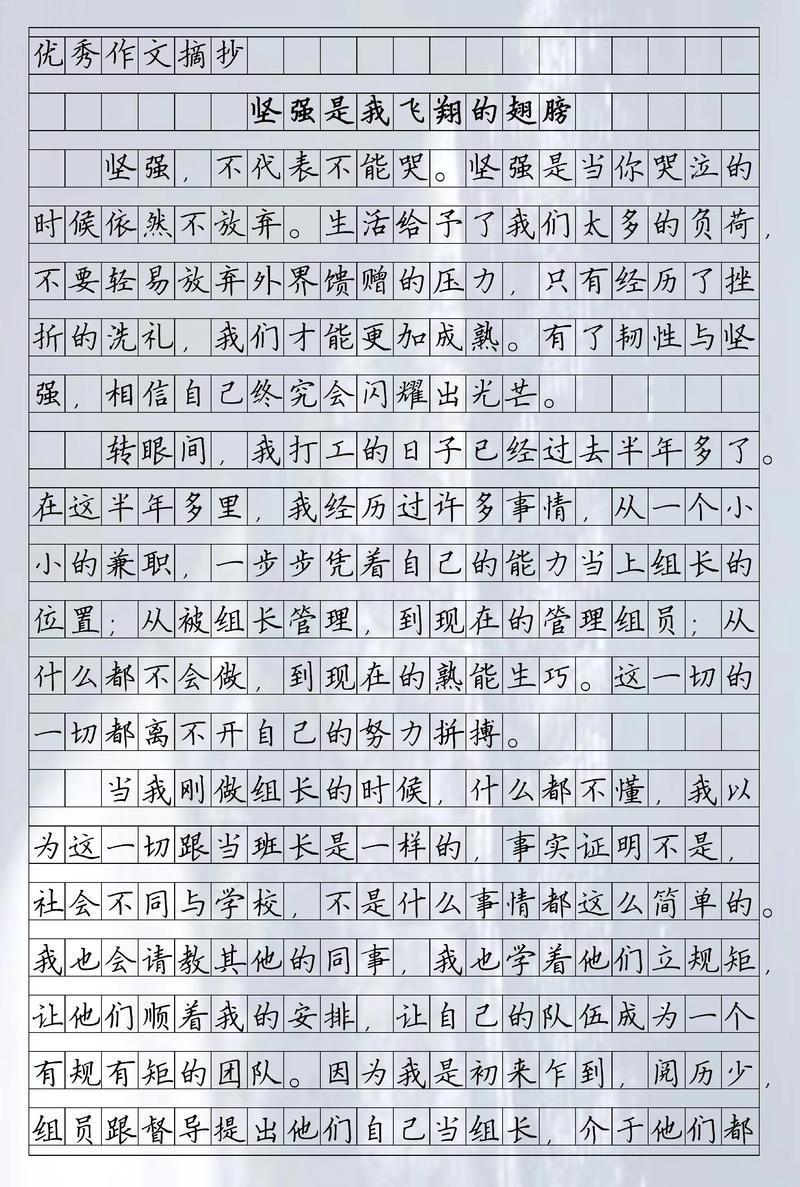 优秀作文摘抄
坚强是我飞翔的翅膀
坚强，不代表不能哭。坚强是当你哭泣的
时候依然不放弃。生活给予了我们太多的负荷，
不要轻易放弃外界馈赠的压力，只有经历了挫
折的洗礼，我们才能更加成熟。有了韧性与坚
强，相信自己终究会闪耀出光芒。
转眼间，我打工的日子已经过去半年多了。
在这半年多里，我经历过许多事情，从一个小
小的兼职，一步步凭着自己的能力当上组长的
位置；从被组长管理，到现在的管理组员；从
什么都不会做，到现在的熟能生巧。这一切的
一切都离不开自己的努力拼搏。
当我刚做组长的时候，什么都不懂，我以
为这一切跟当班长是一样的，事实证明不是，
社会不同与学校，不是什么事情都这么简单的。
我也会请教其他的同事，我也学着他们立规矩，
让他们顺着我的安排，让自己的队伍成为一个
有规有矩的团队。因为我是初来乍到，阅历少，
组员跟督导提出他们自己当组长，介于他们都